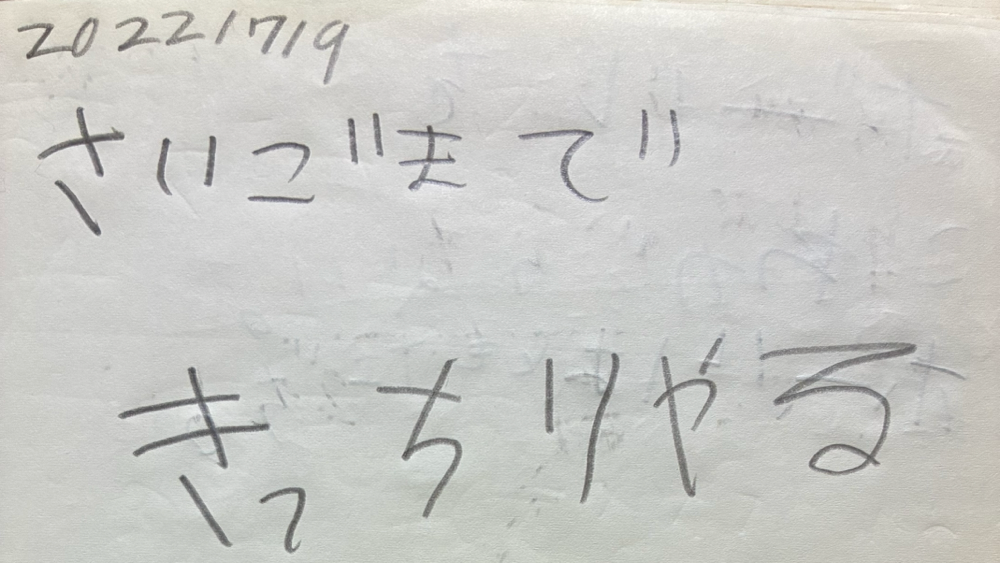 2022/7/9
さいごまで
きっちりやる